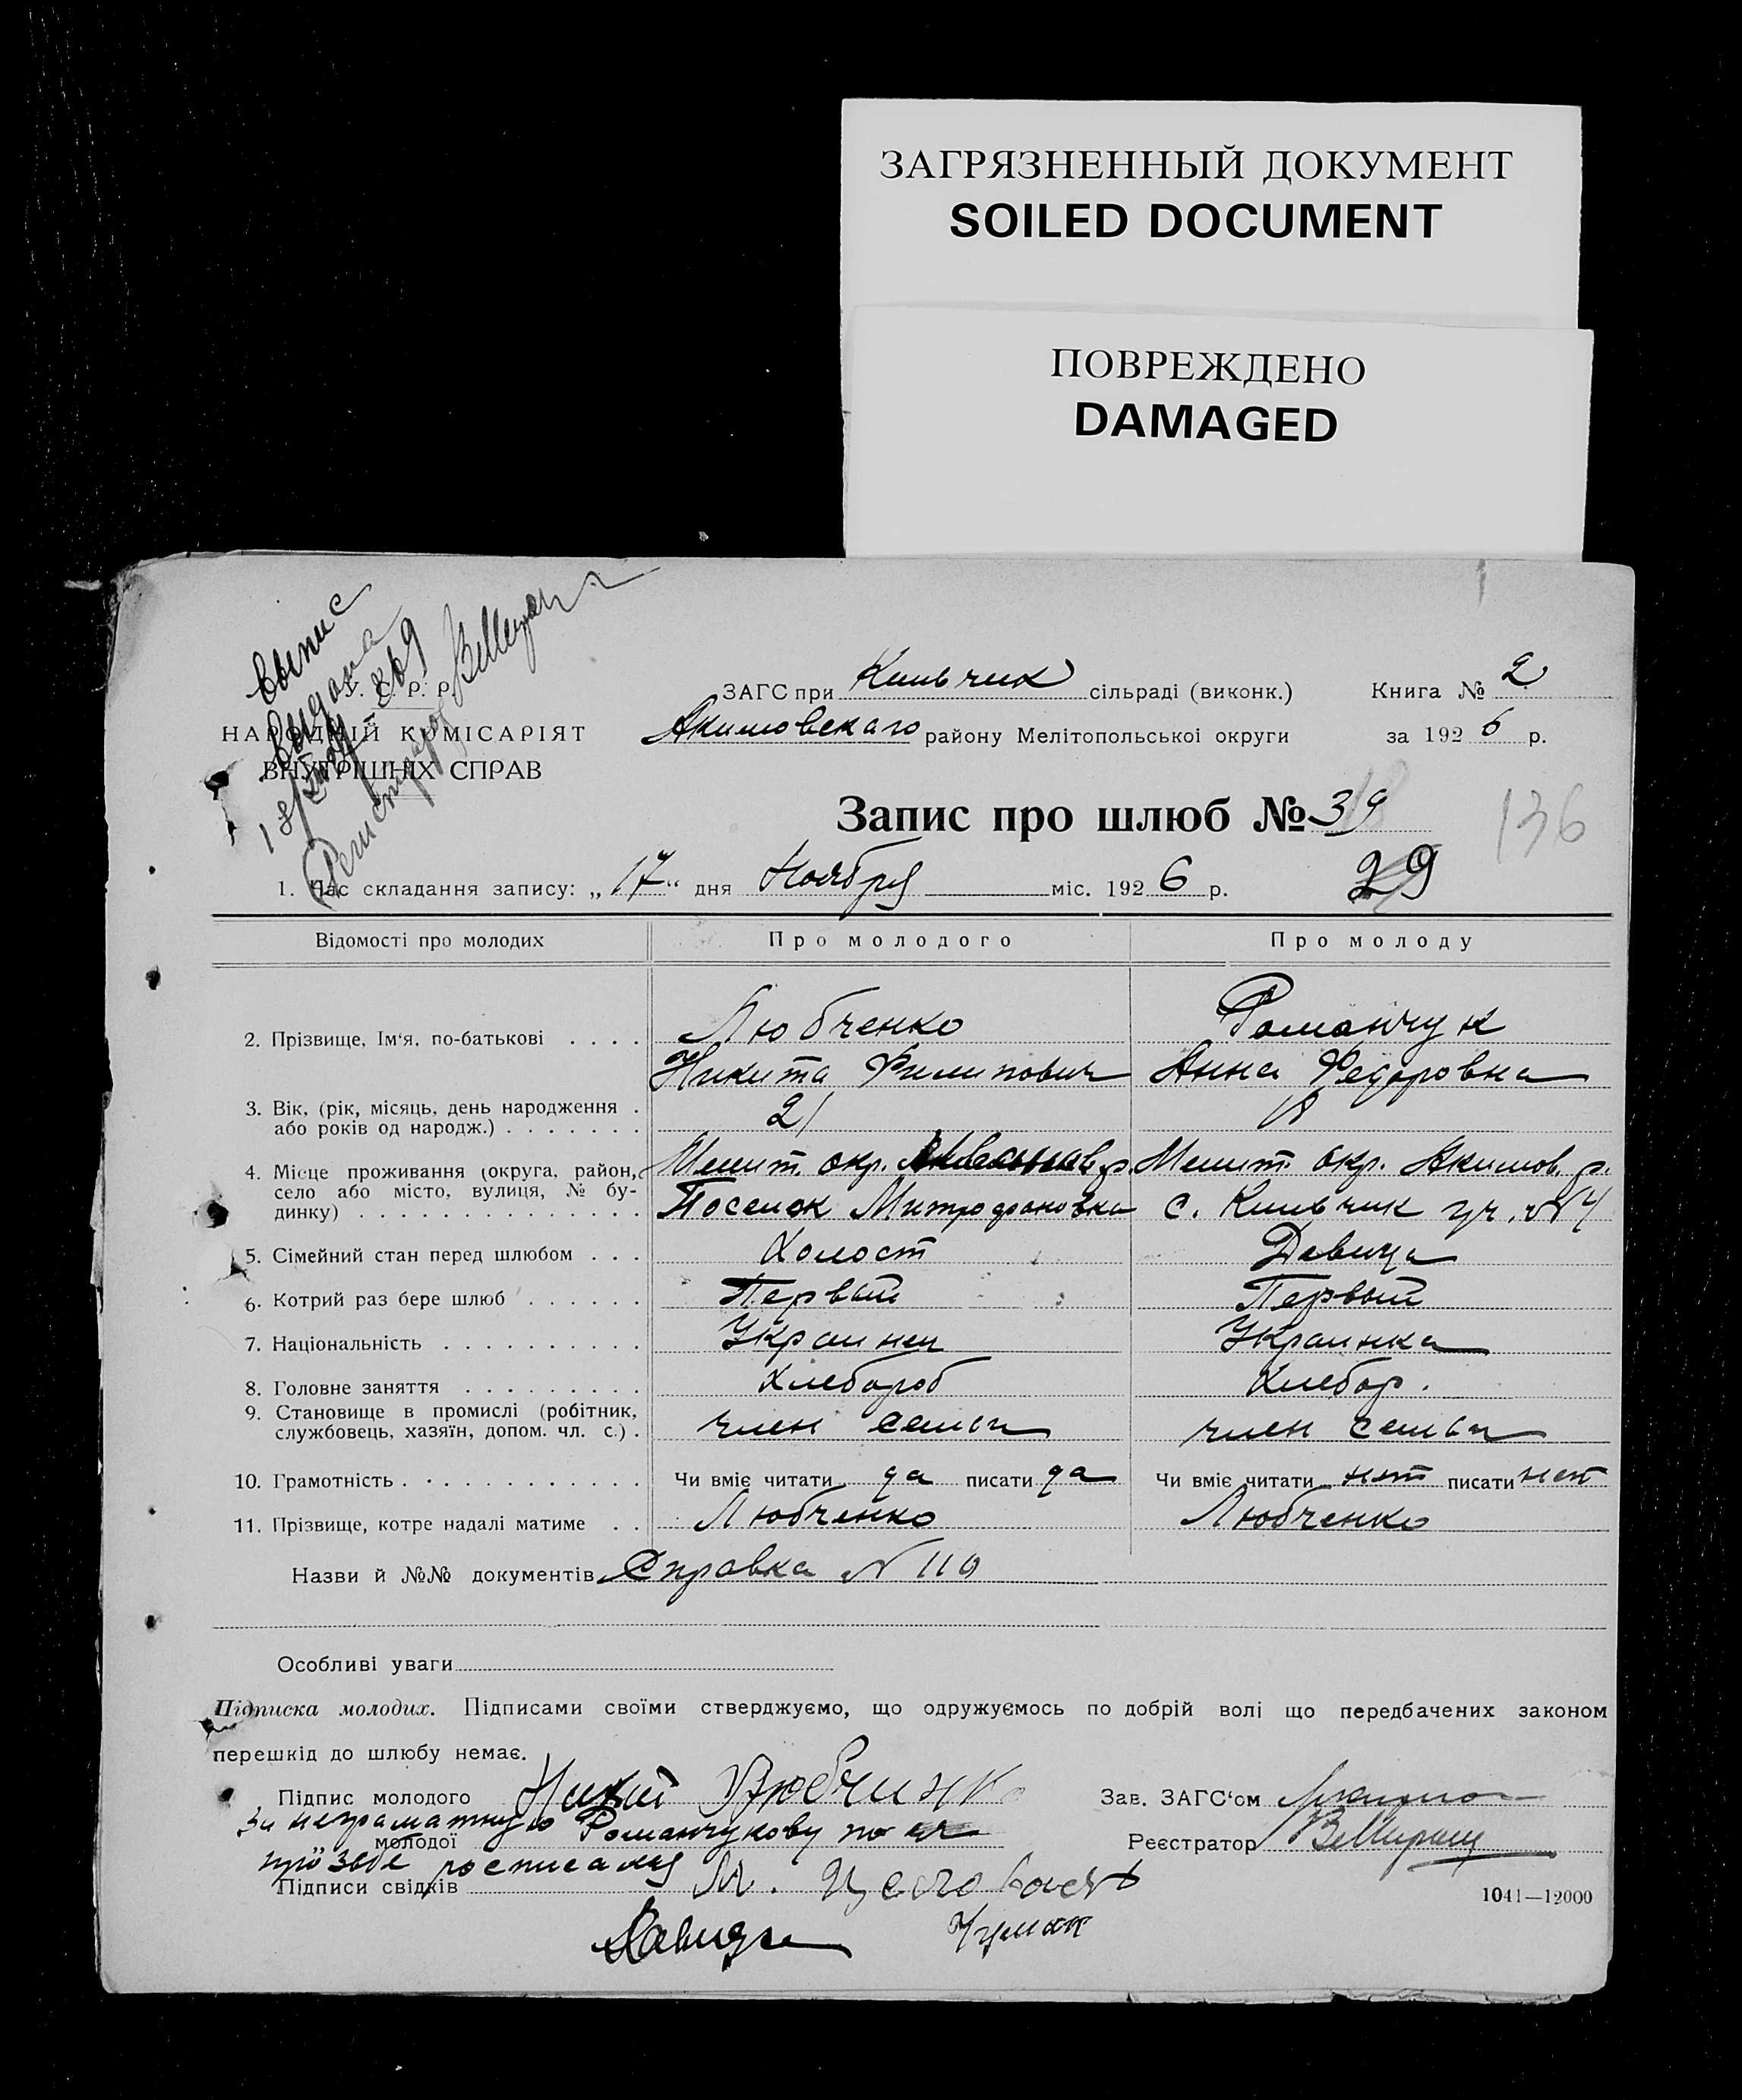 ЗАГРЯЗНЕННЫЙ ДОКУМЕНТ
SOILED DOCUMENT
ПОВРЕЖДЕНО
DAMAGED
выпис
выдана
18/
869
Регистратор
У. С. Р. Р.
НАРОДНІЙ КОМІСАРІЯТ
ВНУТРІШНІХ СПРАВ
ЗАГС при Кильчик сільраді (виконк.) Книга № 2
Акимовскаго району Мелітопольської округи за 1926 р.
Запис про шлюб № 39
136
1. Час складання запису: „17“ дня Ноября міс. 1926 р. 29
Відомості про молодих Про молодого Про молоду
2. Прізвище, Ім‘я, по-батькові . . . . Любченко Романчук
Никита Филипович Анна Федоровна
3. Вік, (рік, місяць, день народження . 21 18
або років од народж.) . . . . . . .
4. Місце проживання (округа, район, Мелит. окр. р. Мелит окр. Акимов. р.
село або місто, вулиця, № бу-
динку) . . . . . . . . . . . . . . Поселок Митрофановка с. Кильчик уч. №4
5. Сімейний стан перед шлюбом . . . Холост Девица
6. Котрий раз бере шлюб . . . . . . Первый Первый
7. Національність . . . . . . . . . . Украинец Украинка
8. Головне заняття . . . . . . . . . Хлебороб Хлебор.
9. Становище в промислі (робітник,
службовець, хазяїн, допом. чл. с.) . член семьи член семьи
10. Грамотність . . . . . . . . . . . . Чи вміє читати да писати да Чи вміє читати нет писати нет
11. Прізвище, котре надалі матиме . . Любченко Любченко
Назви й №№ документів Справка № 110
Особливі уваги
Підписка молодих. Підписами своїми стверджуємо, що одружуємось по добрій волі що передбачених законом
перешкід до шлюбу немає.
Підпис молодого Любчинко Зав. ЗАГС‘ом
За неграматную Романчукову по ея
молодої Реєстратор
прозьбе росписался
Підписи свідків М.
1041—12000
Чумак